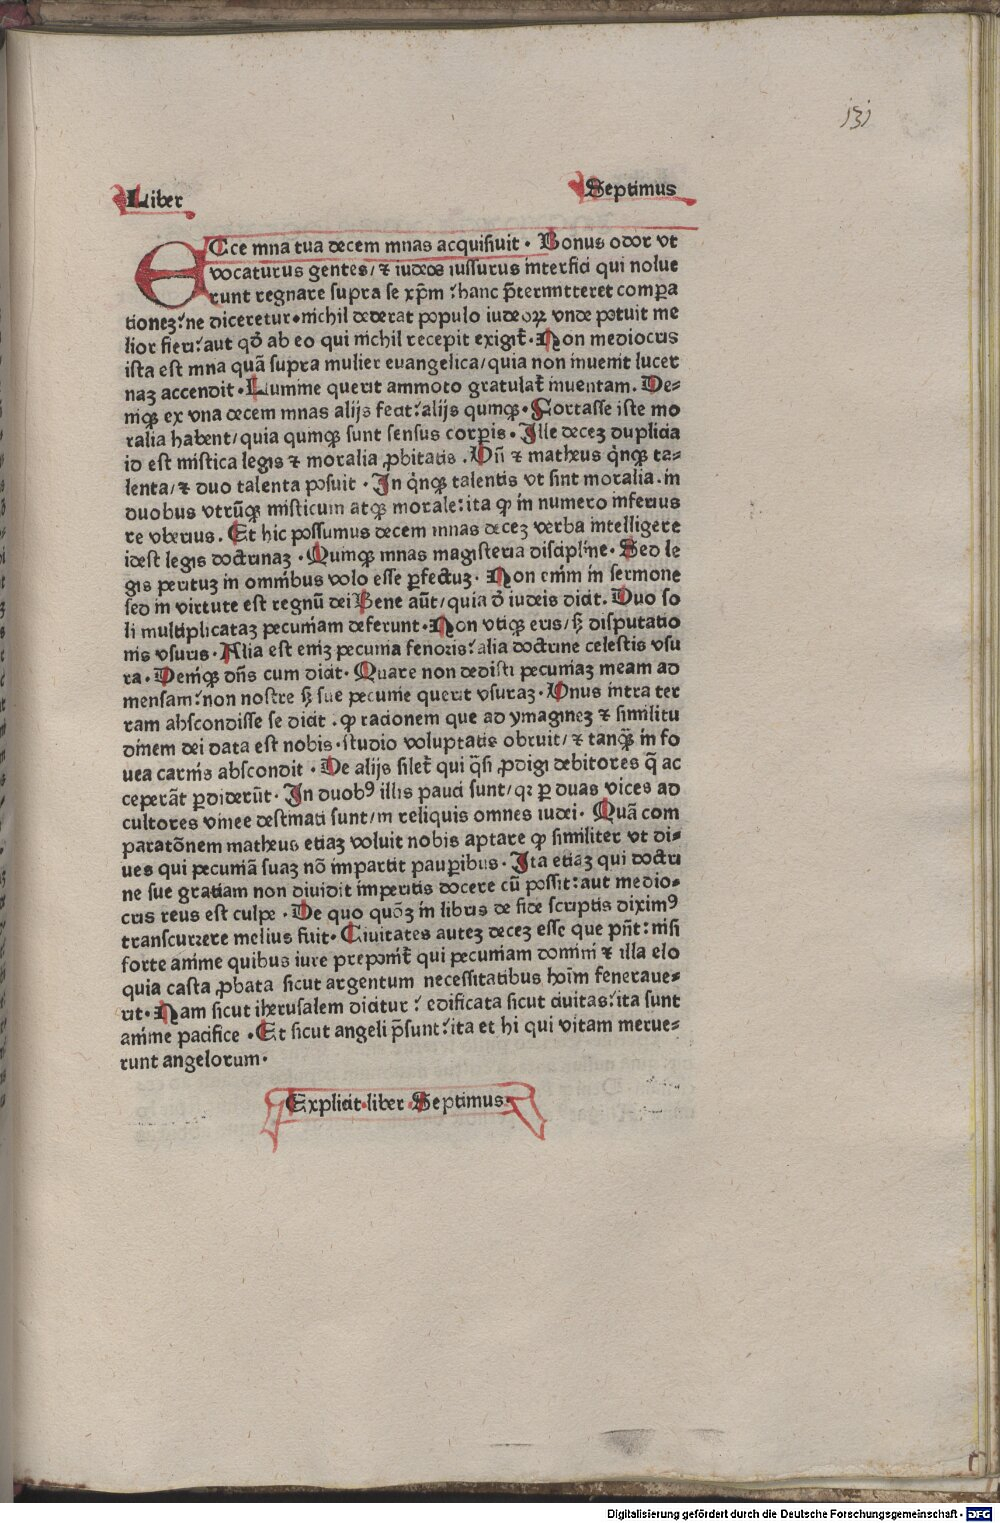 131
Liber Septimus
ECce mna tua decem mnas acquisiuit · Bonus odor vt
vocaturus gentes/ ⁊ iudeos iussurus interfici qui nolue
runt regnare supra se xp̄m ? hanc p̄termitteret compa
tionez? ne diceretur · nichil dederat populo iudeoꝝ vnde potuit me
lior fieri? aut qd̄ ab eo qui nichil recepit exigit᷑ · Non mediocris
ista est mna quā supra mulier euangelica/ quia non inuenit lucer
naz accendit · Lumine querit ammoto gratulat᷑ inuentam. De⸗
niqꝫ ex vna decem mnas alijs fecit? alijs quinqꝫ · Fortasse iste mo
ralia habent/ quia quinqꝫ sunt sensus corꝑis · Ille decez duplicia
id est mistica legis ⁊ moralia ꝓbitatis . Vn̄ ⁊ matheus q̇nqꝫ ta⸗
lenta/ ⁊ duo talenta posuit · In q̇nqꝫ talentis vt sint moralia . in
duobus vtrūqꝫ misticum atqꝫ morale: ita ꝙ in numero inferius
re vberius . Et hic possumus decem mnas decez verba intelligere
idest legis doctrinaz · Quinqꝫ mnas magisteria discipline · Sed le
gis perituz in omnibus volo esse ꝑfectuz · Non enim in sermone
sed in virtute est regnū dei Bene aūt/ quia d̄ iudeis dicit. Duo so
li multiplicataz pecuniam deferunt · Non vtiqꝫ eris/ sꝫ disputatio
nis vsuris · Alia est eniz pecunia fenoris? alia doctrine celestis vsu
ra · Deniqꝫ dn̄s cum dicit · Quare non dedisti pecuniaz meam ad
mensam? non nostre sꝫ sue pecunie querit vsuraz · Vnus intra ter
ram abscondisse se dicit . ꝙ racionem que ad ymaginez ⁊ similitu
dinem dei data est nobis · studio voluptatis obruit/ ⁊ tanqꝫ̄ in fo
uea carnis abscondit · De alijs silet᷑ qui q̄si ꝓdigi debitores q̄ ac
ceperāt ꝑdiderūt · In duobꝰ illis pauci sunt/ qꝛ ꝑ duas vices ad
cultores vinee destinati sunt/ in reliquis omnes iudei · Quā com
paratōnem matheus etiaz voluit nobis aptare ꝙ similiter vt di⸗
ues qui pecuniā suaz nō impartit pauꝑibus · Ita etiaz qui doctri
ne sue gratiam non diuidit imperitis docere cū possit: aut medio⸗
cris reus est culpe · De quo quōꝫ in libris de fide scriptis diximꝰ
transcurrere melius fuit · Ciuitates autez decez esse que pn̄t: nisi
forte anime quibus iure preponit᷑ qui pecuniam domini ⁊ illa elo
quia casta ꝓbata sicut argentum necessitatibus hoīm feneraue⸗
rit · Nam sicut iherusalem dicitur ? edificata sicut ciuitas? ita sunt
anime pacifice · Et sicut angeli p̄sunt? ita et hi qui vitam merue⸗
runt angelorum ·
Explicit liber Septimus ·
Digitalisierung gefördert durch die Deutsche Forschungsgemeinschaft - DFG